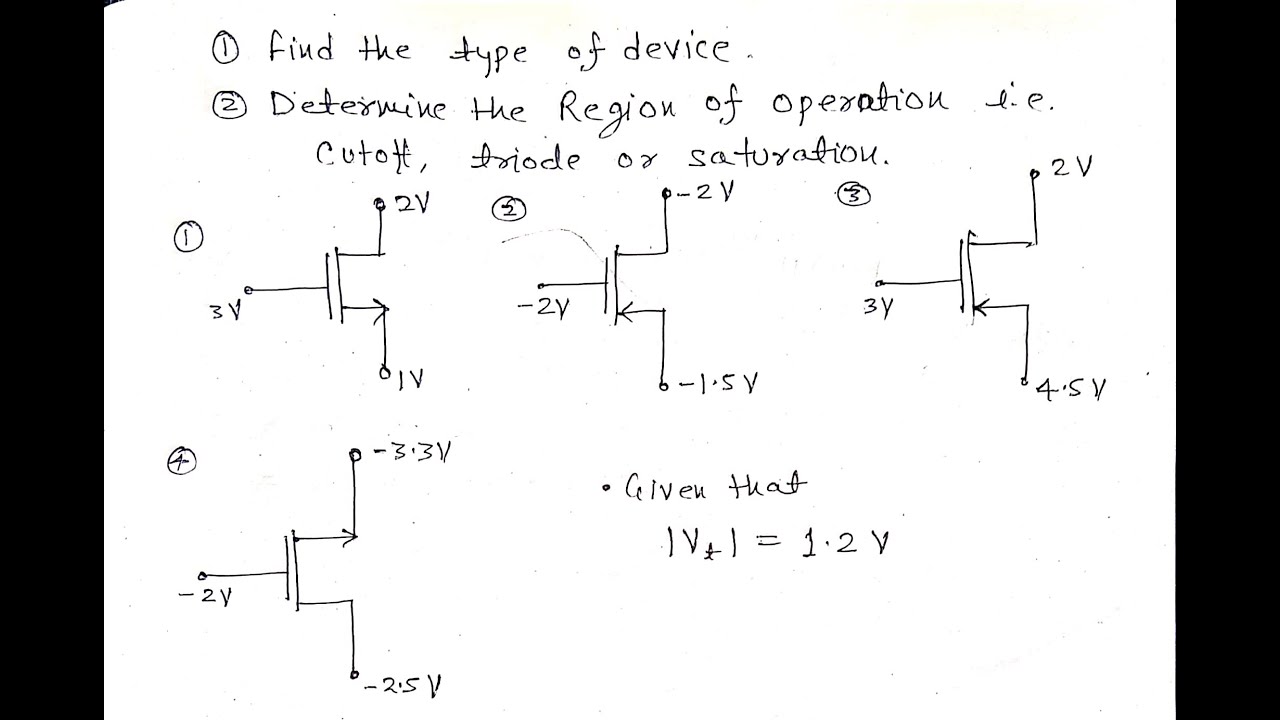 ① Find the type of device.
② Determine the Region of operation i.e.
Cutoff, triode or saturation.
① 3V 2V 1V
② -2V -2V -1.5V
③ 3V 2V 4.5V
④ -2V -3.3V -2.5V
• Given that
|Vt| = 1.2V